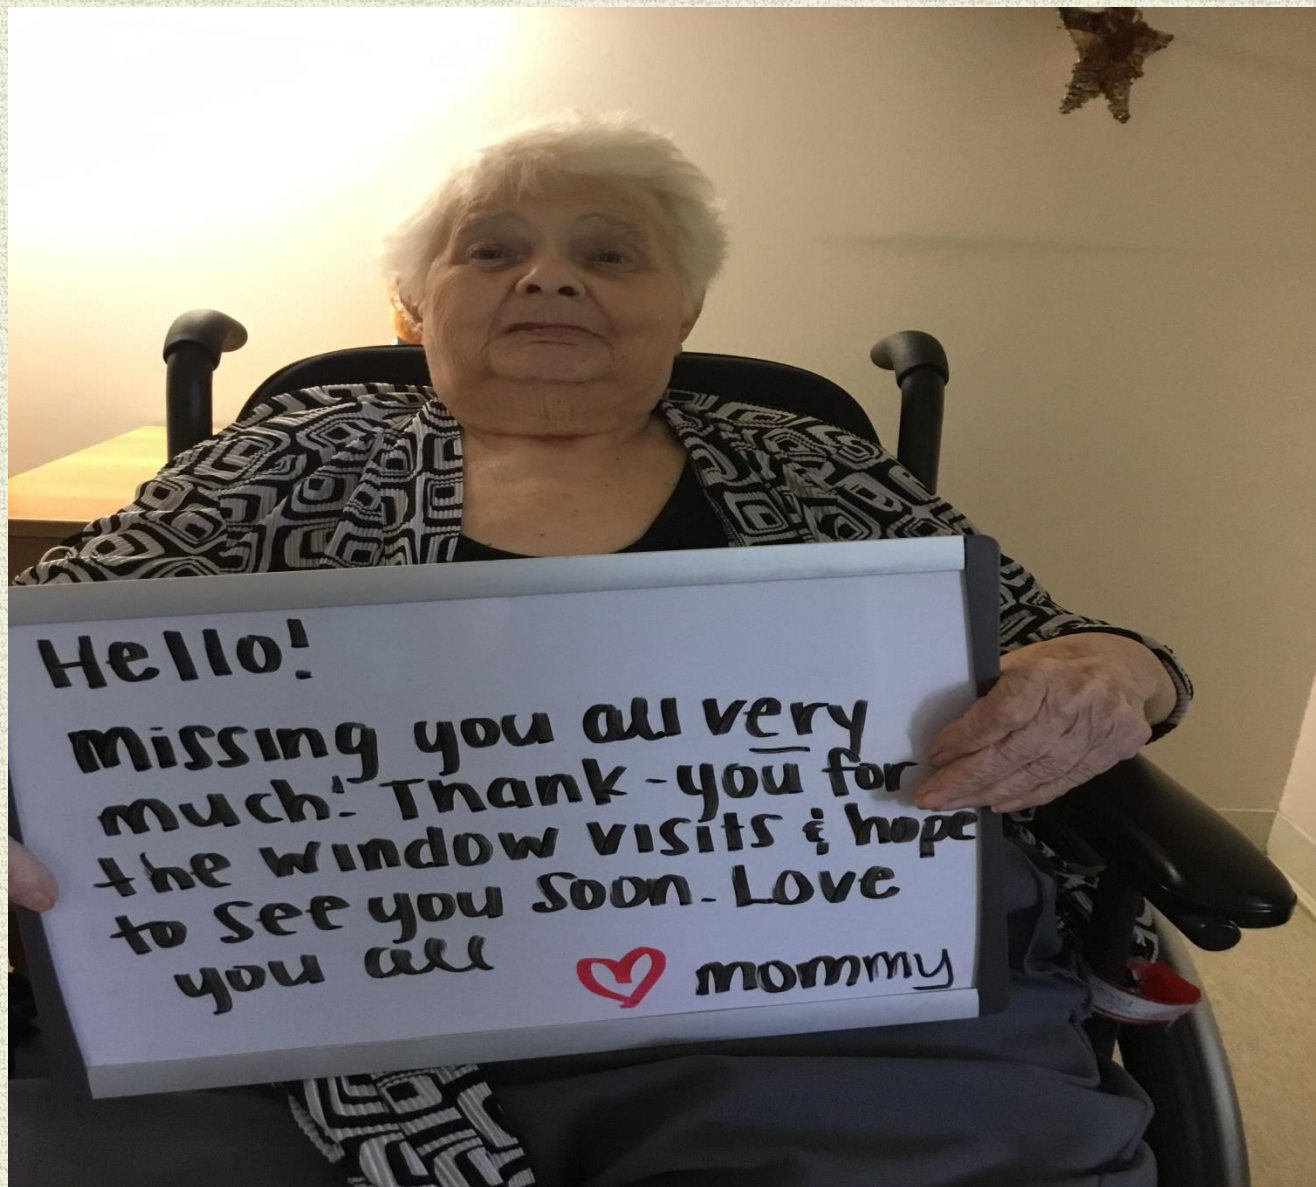 Hello!
Missing you all very
much! Thank-you for
the window visits & hope
to see you soon. Love
you all ♥ mommy